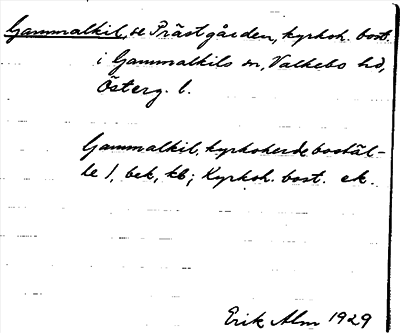 Gammalkil, se Prästgården, kyrkoh. bost.
i Gammalkils sn, Valkebo hd,
Österg. l.
Gammalkil, kyrkoherdebostäl-
le 1, bek, kb; Kyrkoh. bost. ek.
Erik Alm 1929